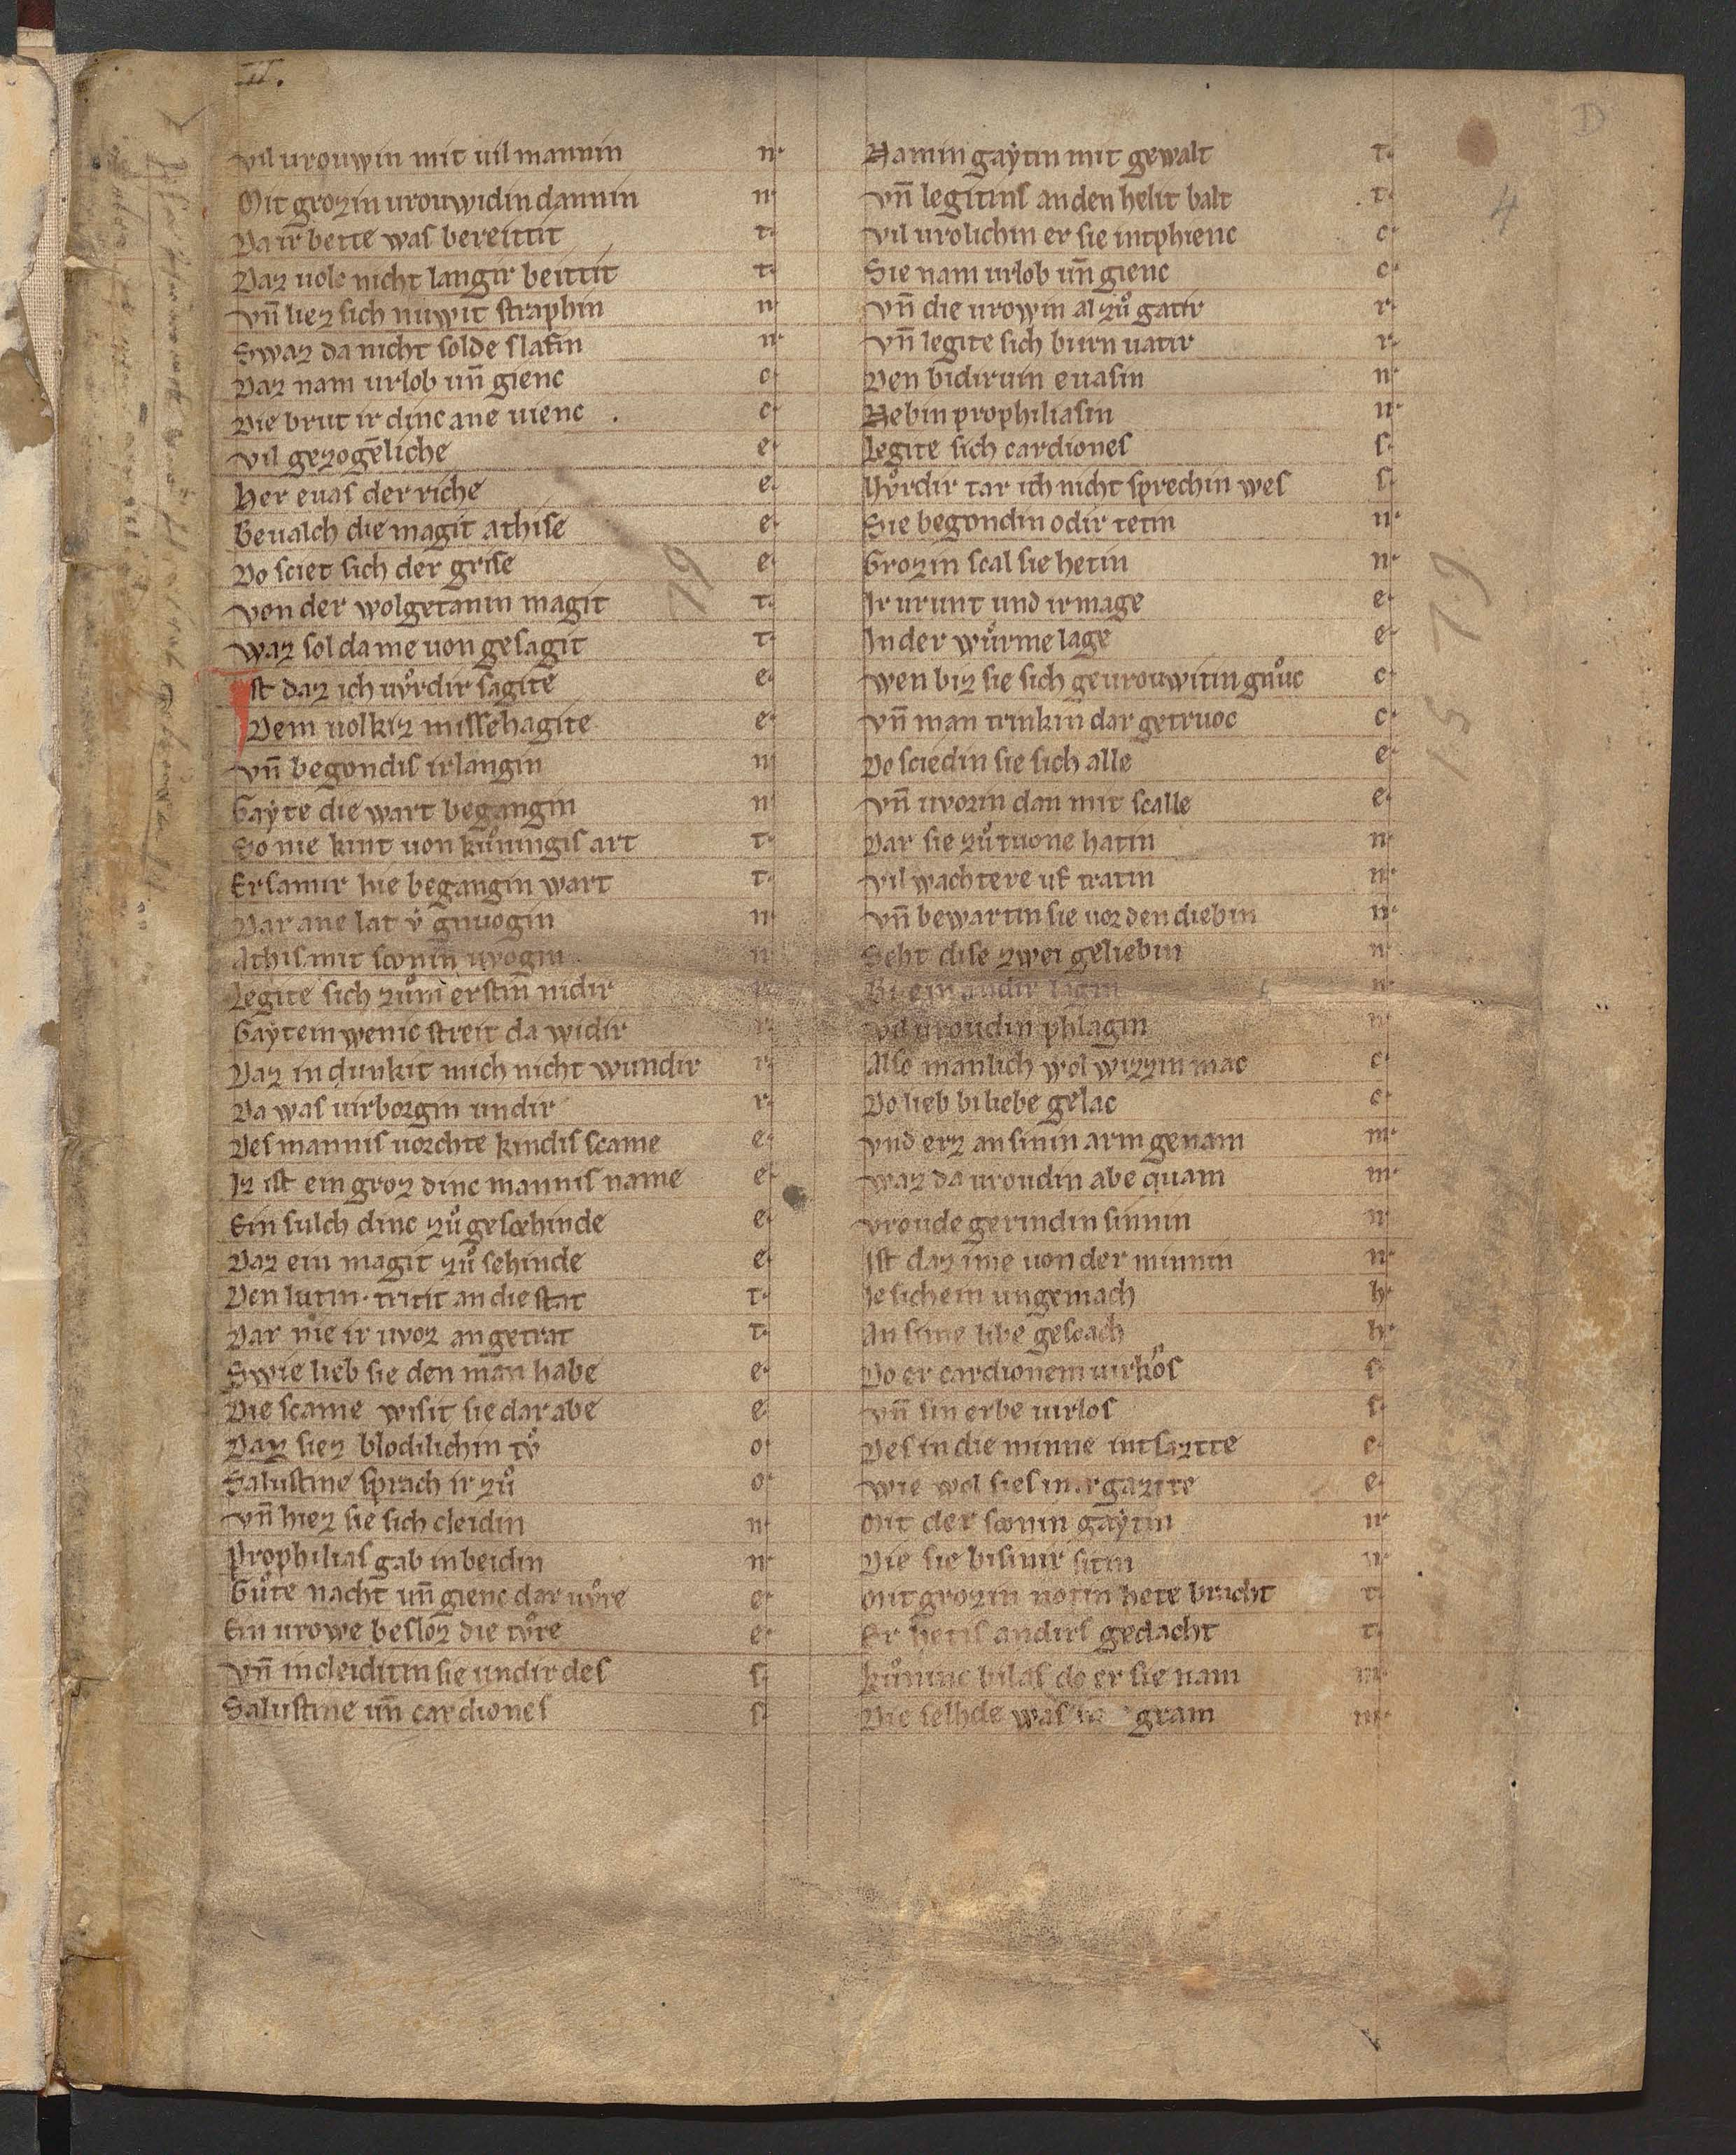 II.
D
4
Vil vrouwin mit uil mannin
Mit grozin urouwidin dannin
Da ir bette was bereittit
Daz uolc nicht langir beittit
Vn̄ liez sich nuwit straphin
Swaz da nicht solde slafin
Daz nam urlob un̄ gienc
Die brut ir dinc ane uienc
Vil gezogēliche
Her euas der riche
Beualch die magit athise
Do sciet sich der grise
Von der wolgetanin magit
Waz sol da me uon gesagit
Ist daz ich uv̊rdir sagite
Dem uolkiz missehagite
Vn̄ begondis irlangin
Gaẏte die wart begangin
So nie kint uon ku̇ningis art
Ersamir hie begangin wart
Dar ane lat v̊ gnuogin
Athis mit sconin̄ uvogin
Legite sich zům erstin nidir
Gaẏtein wenic streit da widir
Daz in dunkit mich nicht wundir
Da was uirborgin undir
Des mannis uorchte kindis scame
Iz ist ein groz dinc mannis name
Ein sulch dinc zů gescehinde
Daz ein magit zů sehinde
Den lutin tritit an die stat
Dar nie ir uvoz an getrat
Swie lieb sie den man habe
Die scame wisit sie dar abe
Daz siez blodilichin tv̊
Salustine sprach ir zů
Vn̄ hiez sie sich cleidin
Prophilias gab in beidin
Gůte nacht un̄ gienc dar uv̊re
Ein urowe besloz die tv̊re
Vn̄ incleiditin sie undir des
Salustine un̄ cardiones
Namin gaẏtin mit gewalt
Vn̄ legitins an den helit balt
Vil urolichin er sie intphienc
Sie nam urlob un̄ gienc
Vn̄ die urowin al zů gatir
Vn̄ legite sich birn uatir
Den bidiruin euasin
Nebin prophiliasin
Legite sich cardiones
Uv̊rdir tar ich nicht sprechin wes
Sie begondin odir tetin
Grozin scal sie hetin
Ir urunt und ir mage
In der wůrme lage
Wen biz sie sich geurouwitin gnůc
Vn̄ man trinkin dar getruoc
Do sciedin sie sich alle
Vn̄ uvorin dan mit scalle
Dar sie zů tuone hatin
Vil wachtere uf tratin
Vn̄ bewartin sie uor den diebin
Seht dise zwei geliebin
Bi ein andir lagin
Vil uroudin phlagin
Also manlich wol wizzin mac
Do lieb bi liebe gelac
Vnd erz an sinin arm genam
Waz da uroudin abe quam
Vroude gerindin sinnin
Ist daz ime uon der minnin
Ie sichein ungemach
An sime libe gescach
Do er cardionem uirkôs
Vn̄ sin erbe uirlos
Des in die minne intsaztte
Wie wol sies in
Mit der sconin gaẏtin
Die sie bisinir sitin
Mit grozin notin hete bracht
Er hetis andirs gedacht
Ku̇ninc bilas do er sie nam
Die selhde was gram
79
1579